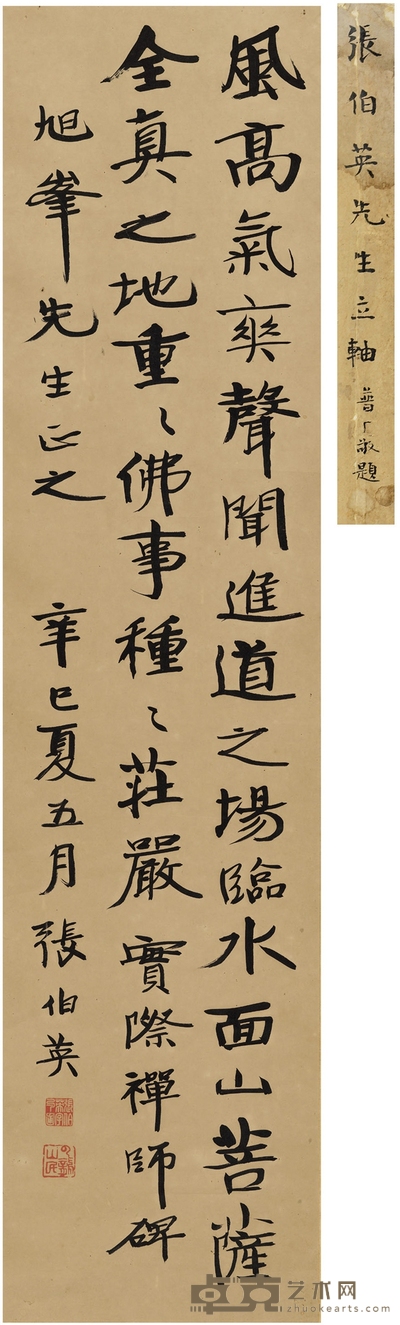 風高氣爽聲聞進道之場臨水面山菩薩
全真之地重〻佛事種〻莊嚴實際禪師碑
旭峯先生正之 辛巳夏五月張伯英
張伯英先生立軸 敬題
卓克艺术网
zhuokearts.com